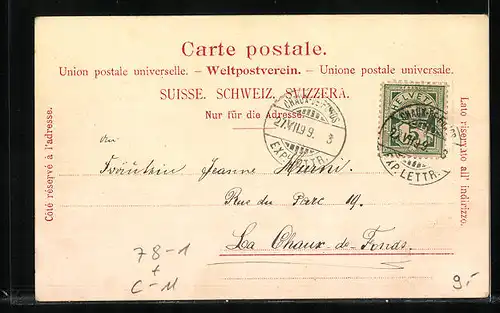 Carte postale.
Union postale universelle. – Weltpostverein. – Unione postale universale.
SUISSE. SCHWEIZ. SVIZZERA.
Nur für die Adresse.
Côté réservé à l'adresse.
Lato riservato all' indirizzo.
HELVETIA
CHAUX-DE-FONDS
EXP. LETTR.
CHAUX-DE-FONDS
EXP. LETTR.
An
Fräulein Jeanne
Rue du Parc 19.
La Chaux-de-Fonds.
78-1
+
C-11
9.-